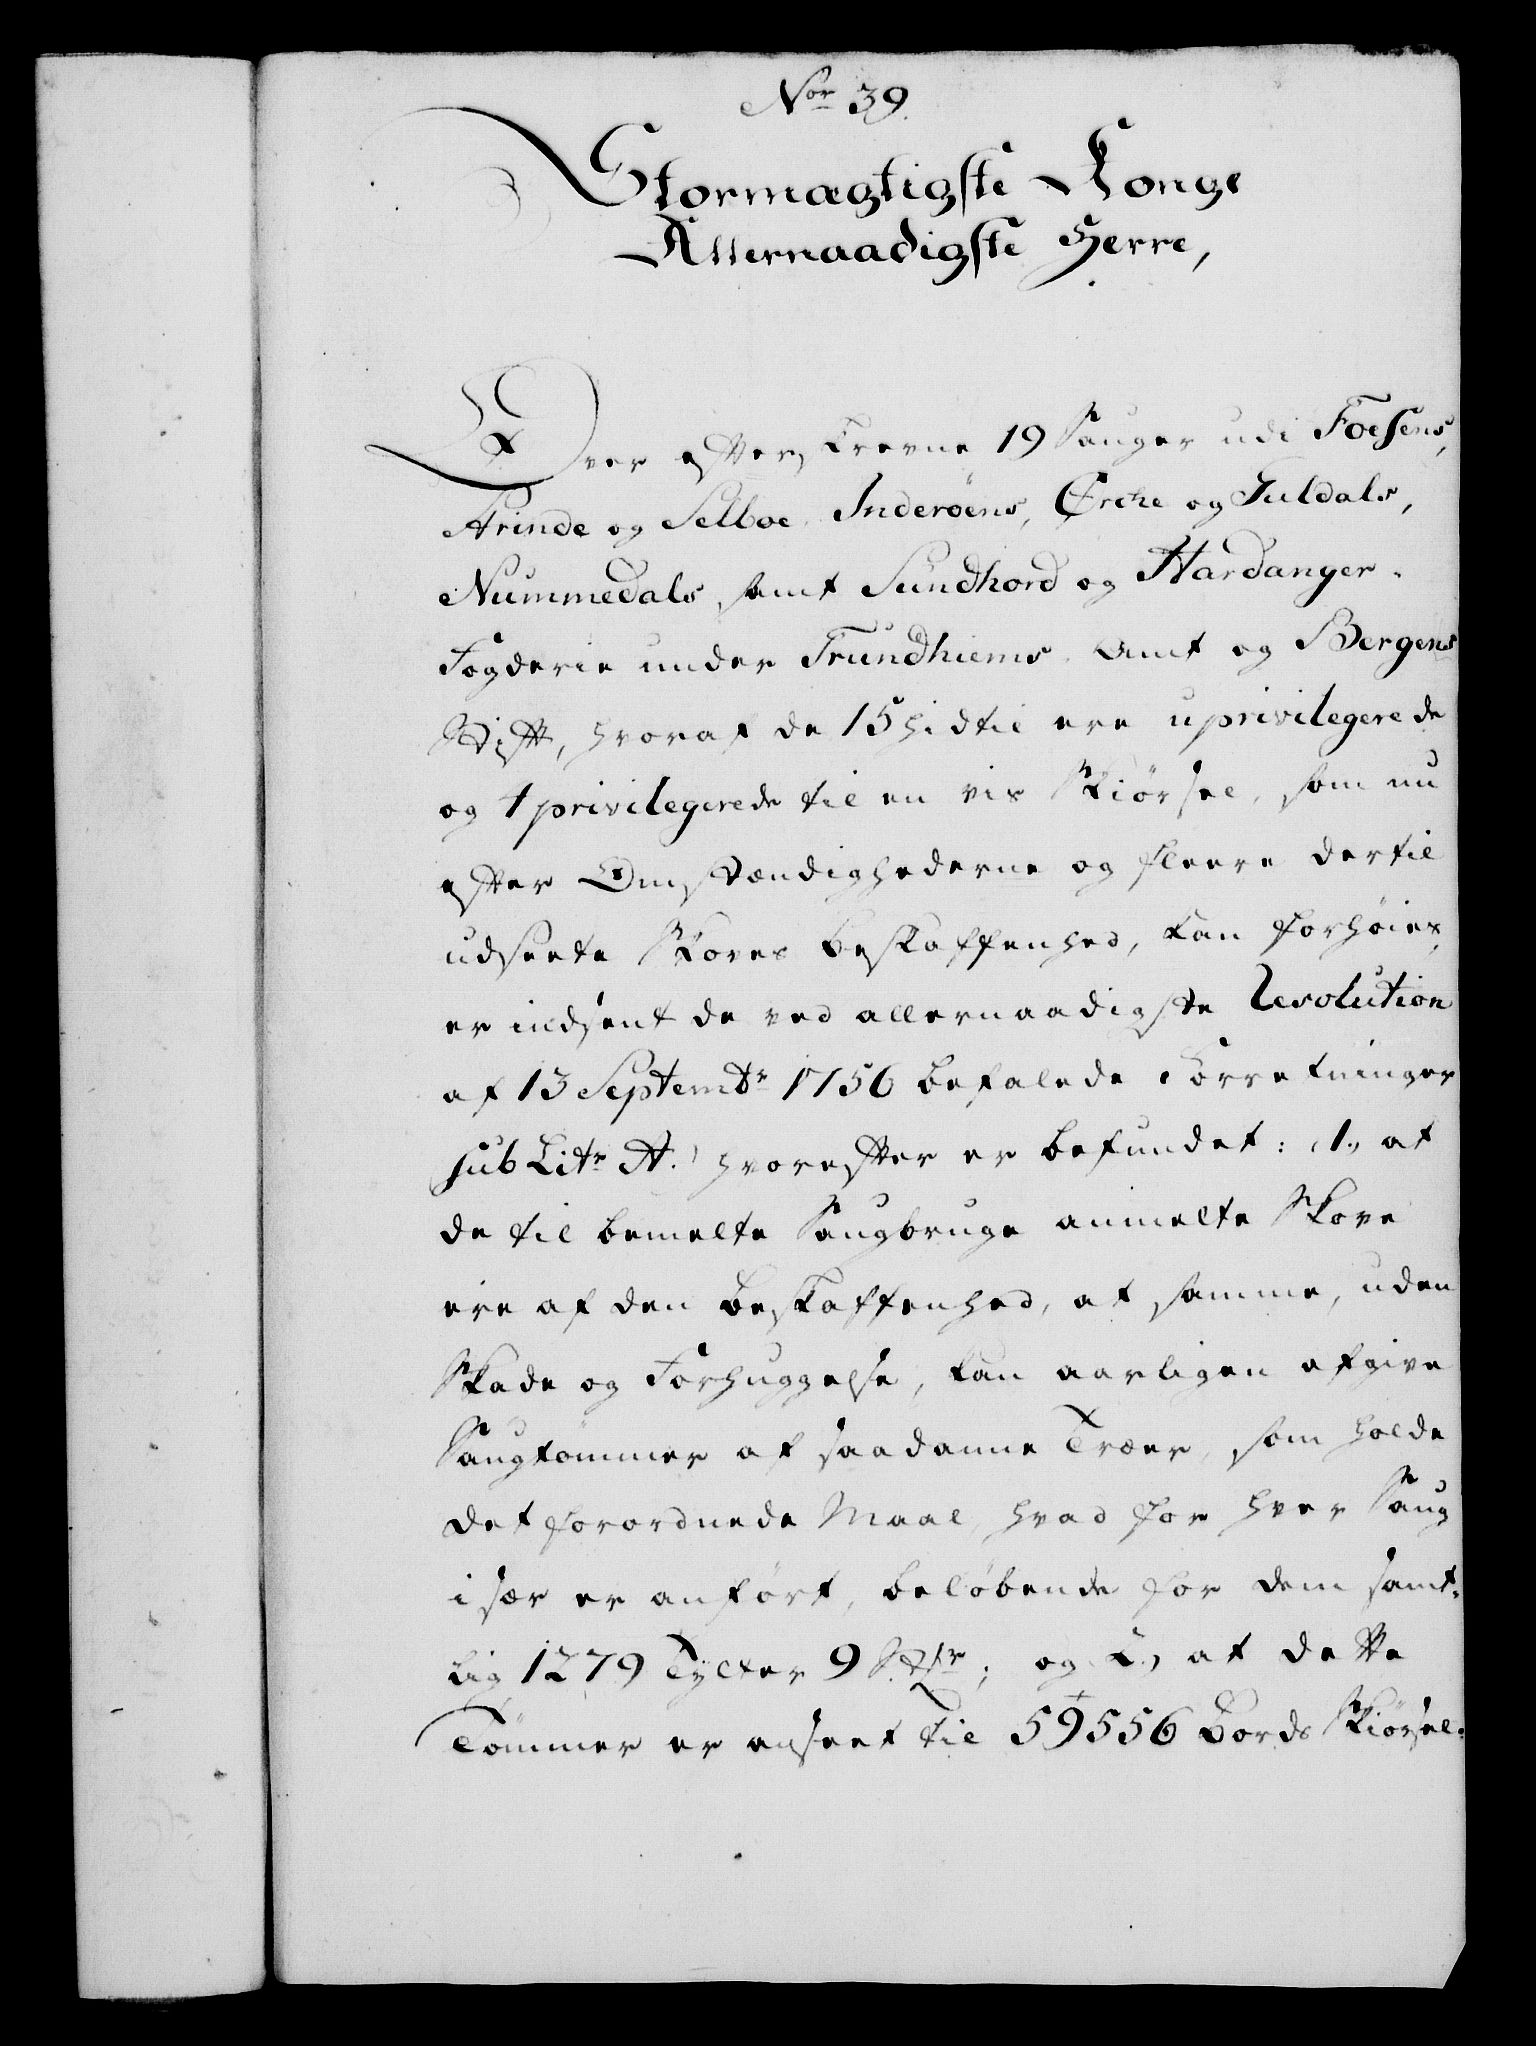 Nor 39.
Stormægtigste Konge
Allernaadigste Herre,
Over efterskrevne 19 Sauger udi Foesens,
Strinde og Selboe, Inderöens, Örche og Guldals,
Nummedals, samt Sundhord og Hardanger-
Fogderie under Trundhiems Amt og Bergens
Stift, hvoraf de 15 hidtil ere uprivilegerede
og 4 privilegerede til en vis Skiörsel, som nu
efter Omstændighederne og fleere dertil
udseete Skoves Beskaffenhed, kan forhöies,
er indsent de ved allernaadigste Resolution
af 13 Septembr 1756 befalede Forretninger
sub Litr A. hvorefter er befundet: 1, at
de til bemelte Saugbruge anmelte Skove
ere af den Beskaffenhed, at samme, uden
Skade og Forhuggelse, kan aarligen afgive
Saugtömmer af saadanne Træer, som holde
det forordnede Maal, hvad for hver Saug
især er anfört, belöbende for dem samt-
lig 1279 Tylter 9 Stkr; og 2, at dette
Tömmer er anseet til 59556 Bords Skiörsel.